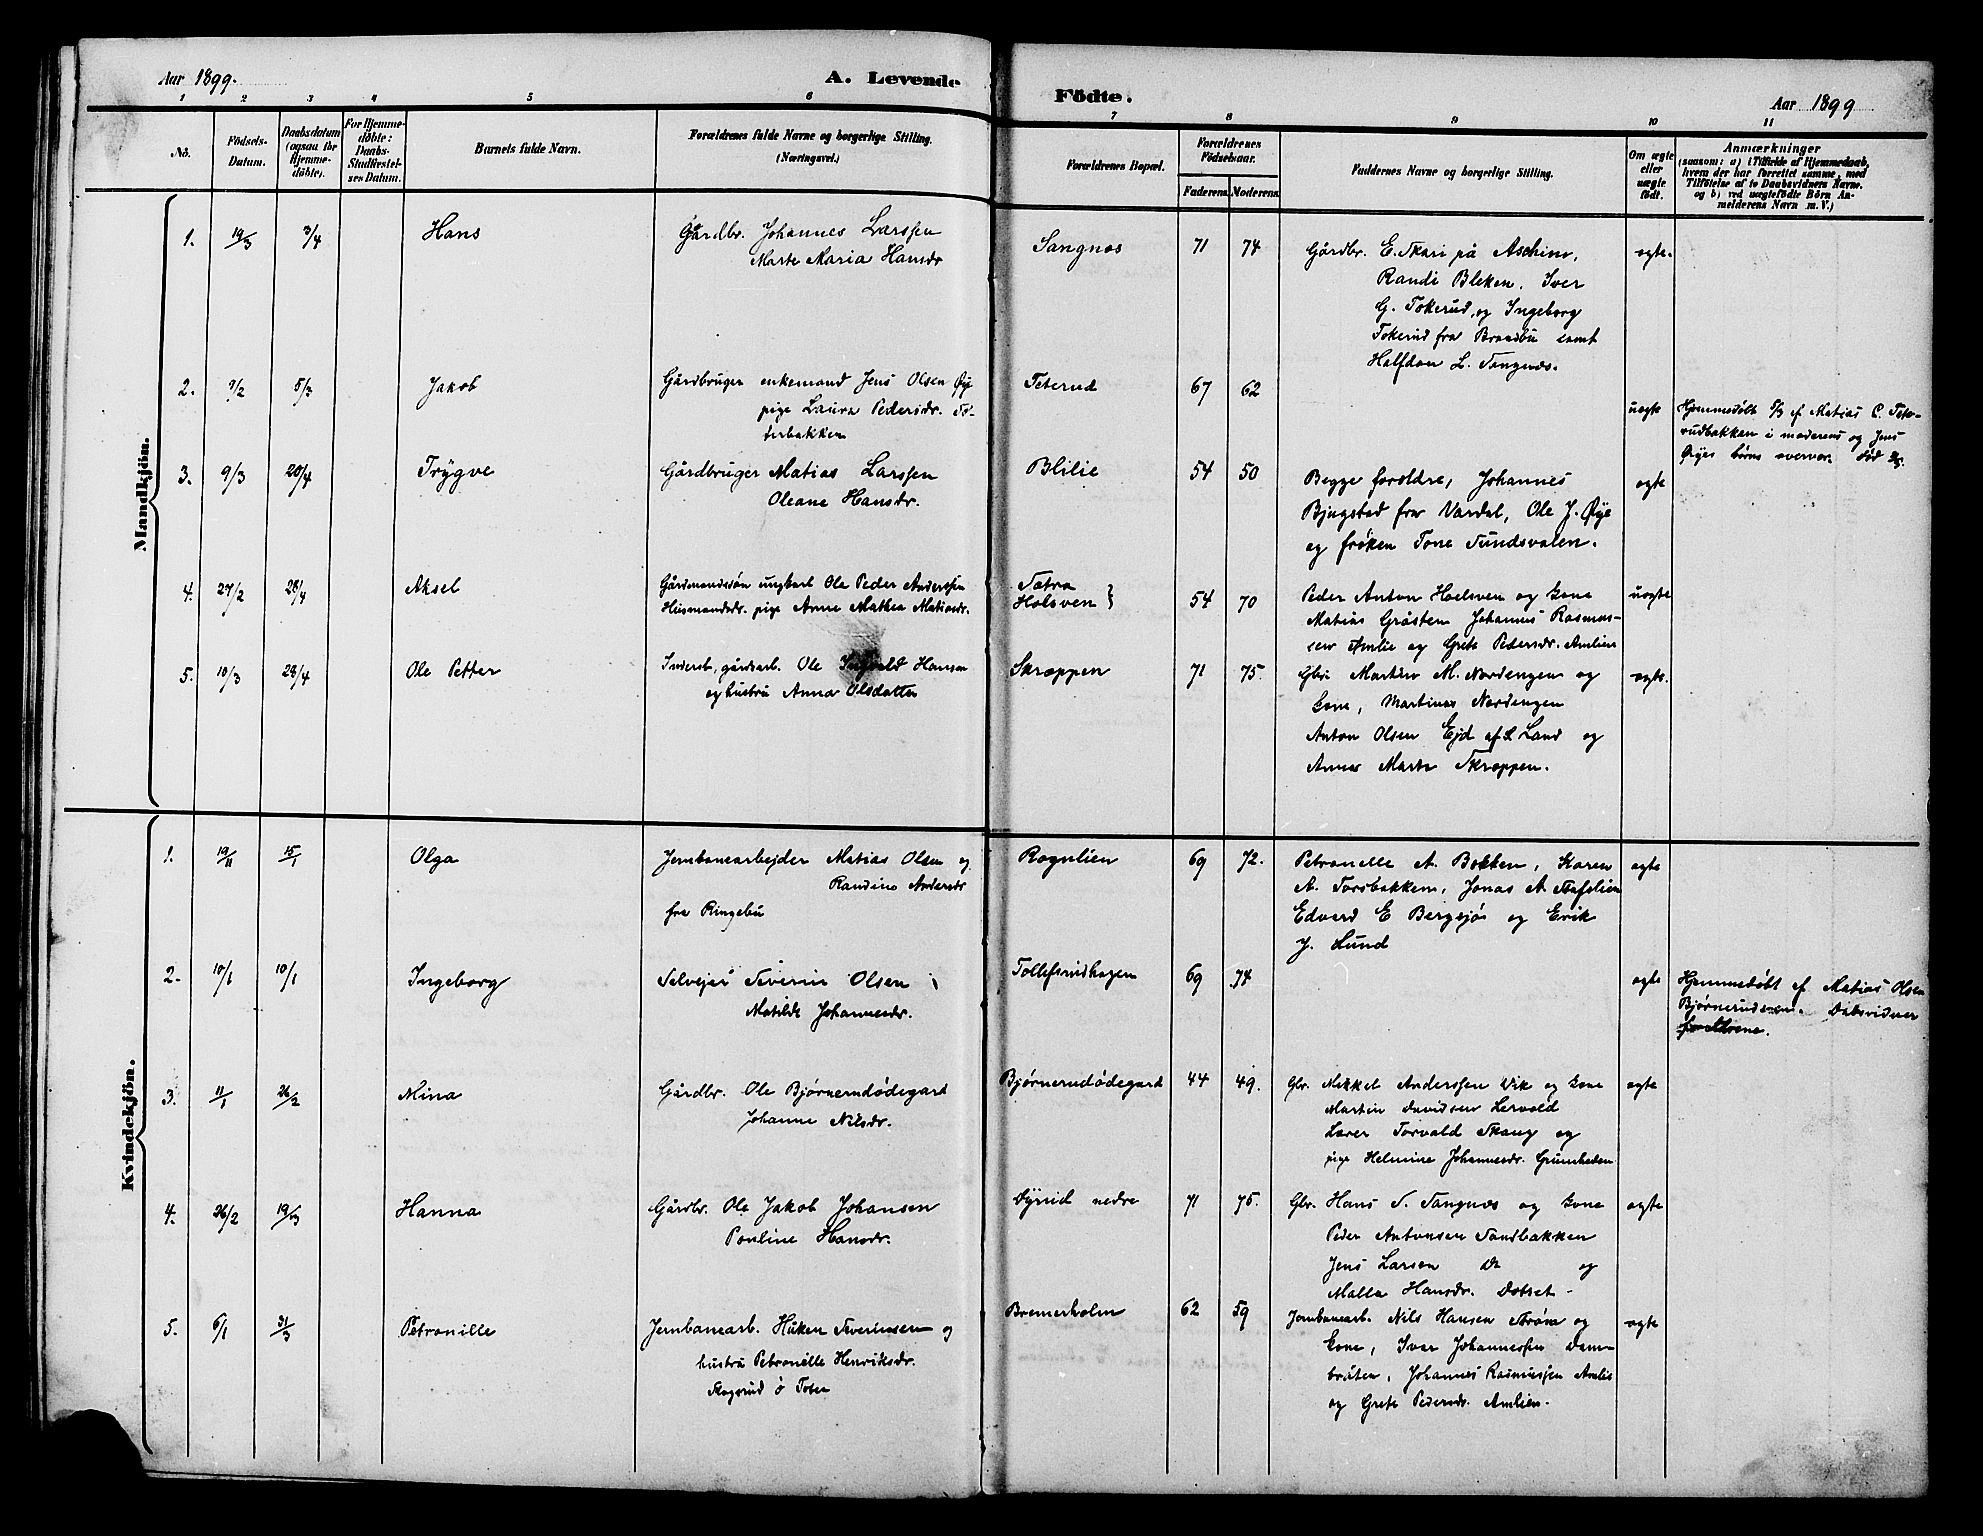 Aar 1899.
A. Levende
Födte.
Aar 1899
1 2 3 4 5 6
7 8 9 10 11
No.
Födsels-
Datum.
Daabsdatum
(ogsaa for
Hjemme-
döbte).
For Hjemme-
döbte:
Daabs-
Stadfæstel-
ses Datum.
Barnets fulde Navn.
Forældrenes fulde Navne og borgerlige Stilling.
(Næringsvei.)
Forældrenes Bopæl.
Forældrenes
Födselsaar.
Faderens. Moderens.
Faddernes Navne og borgerlige Stilling.
Om ægte
eller
uægte
födt.
Anmærkninger
(saasom: a) i Tilfælde af Hjemmedaab,
hvem der har forrettet samme, med
Tilföielse af to Daabsvidners Navne.
og b) ved uægtefödte Börn An-
melderens Navn m. V.)
Mandkjön.
1. 19/3 3/4 Hans
Gårdbr. Johannes Larssen
Marte Maria Hansdr
Sangnæs 71 74
Gårdbr. E. Skari på Aschim,
Randi Bleken, Iver
G. Tokerud, og Ingeborg
Tokerud fra Brandbu samt
Halfdan L. Sangnæs.
ægte.
2. 9/2 5/3 Jakob
Gårdbruger enkemand Jens Olsen Øye
pige Laura Pedersdr. Te-
terbakken
Teterud 67 62
uægte
Hjemmedøbt af Matias C. Tete-
rudbakken i moderens og Jens
Øyes børns overvær. død
3. 9/3 20/4 Trygve
Gårdbruger Matias Larssen
Oleane Hansdr.
Blilie 54 50
Begge forældre, Johannes
Bjugstad fra Vardal, Ole J. Øye
og frøken Tone Sundsvalen.
ægte
4. 27/2 23/4 Aksel
Gårdmandssøn ungkarl Ole Peder Anderssen
Husmandsdr. pige Anne Mathea Matiasdr.
Sætra
Holsven } 54 70
Peder Anton Hoelsven og kone
Matias Gråsten Johannes Rasmus-
sen Amlie og Grete Pedersdr. Amlien
uægte
5. 10/3 23/4 Ole Petter
Inderst, gårdsarb. Ole Ingvald Hansen
og hustru Anna Olsdatter
Skræppen 71 75.
Gbr. Martin M. Nordengen og
kone, Martinus Nordengen
Anton Olsen Ejd af S. Land og
Anna Marte Skræppen.
ægte.
Kvindekjön.
1. 19/11 15/1 Olga
Jernbanearbejder Matias Olsen og
Randine Andersdr
fra Ringebu
Rognlien 69 72.
Petronelle A. Bakken, Karen
A. Torsbakken, Jonas A. Stafslien
Edvard E Bergsjø og Erik
J. Lund
ægte
2. 10/1 10/1 Ingeborg
Selvejer Severin Olsen
Matilde Johannesdr.
Tollefsrudhagen 69 74
ægte
Hjemmedøbt af Matias Olsen
Bjørnerudseien. Dabsvidner
forældrene.
3. 11/1 26/2 Mina
Gårdbr. Ole Bjørnerudødegard
Johanne Nilsdr.
Bjørnerudødegard 44 49.
Gbr. Mikkel Anderssen Vik og kone
Martin Davidsen Lervold
Lærer Torvald Skaug og
pige Helmine Johannesdr. Grumheden
ægte
4. 26/2 19/3 Hanna
Gårdbr. Ole Jakob Johansen
Pauline Hansdr.
Dyrud nedre 71 75.
Gbr. Hans S. Sangnæs og kone
Peder Antonsen Sandbakken
Jens Larsen Do og
Malla Hansdr. Dotset -
ægte
5. 6/1 31/3 Petronille
Jernbanearb. Håken Severinsen og
hustru Petronille Henriksdr.
Skogsrud ø Toten
Bremerholm 62 59
Jernbanearb. Nils Hansen Strøm og
kone, Iver Johannessen Dam-
bråten, Johannes Rasmussen Amlie
og Grete Pedersdr. Amlien.
ægte